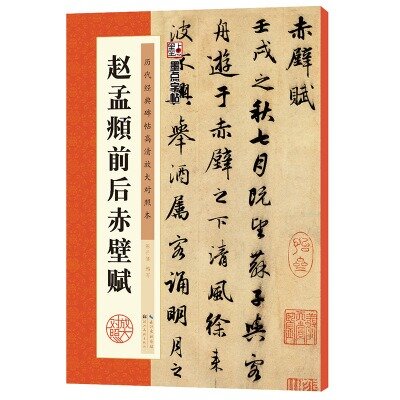 赵孟頫前后赤壁赋
历代经典碑帖高清放大对照本
墨点字帖
放大对照
赤壁賦
壬戌之秋七月既望蘇子與客
舟遊于赤壁之下清風徐来
波不興舉酒属客誦明月之